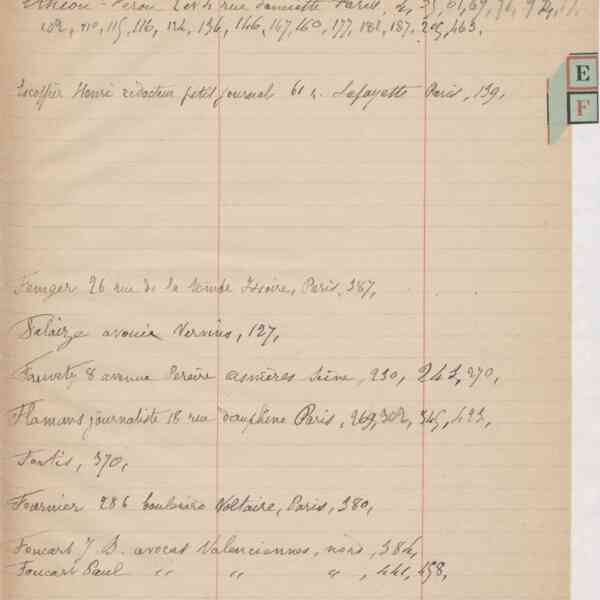 rue Damiette Paris,
102, 110, 115, 116, 124, 136, 146, 147, 160, 177, 182, 187, 205, 463,
Escoffier Henri rédacteur petit journal 61 r. Lafayette Paris, 139,
E
F
Fenger 26 rue de la tombe Issoire, Paris, 387,
avoué Vervins, 127,
Fauvety 8 avenue Pereire asnières Seine, 230, 243, 270,
Flamans journaliste 18 rue dauphine Paris, 269, 302, 345, 423,
Fortis, 370,
Fournier 286 boulevard Voltaire, Paris, 380,
Foucart J. B. avocat Valenciennes, nord, 384,
Foucart Paul " " ", 441, 458,